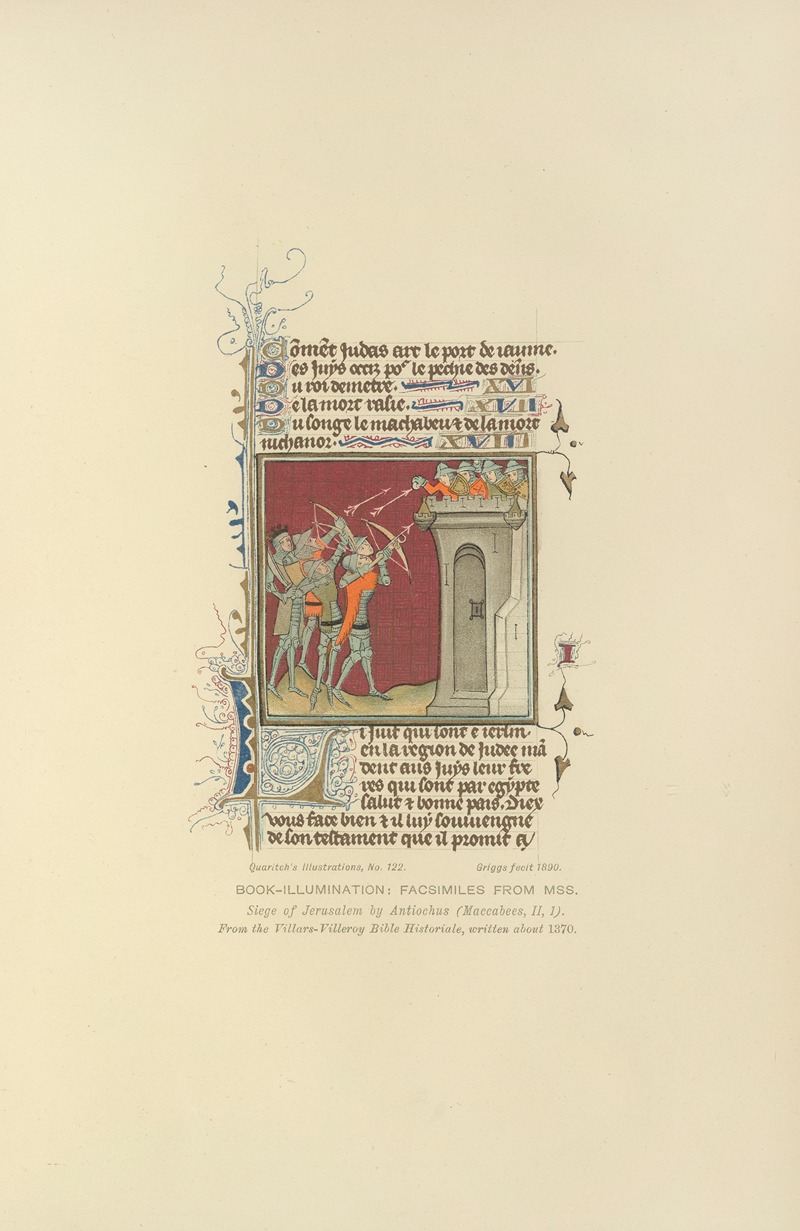 Cōmēt Judas art le port de iaume.
Des Juÿs occiz poͬ le pechie des
Du roi demetre. XVI
De la mort rasie. XVII
Du songe le machabeu ⁊ de la mort
nichanor. XVIII
I
Li Juif qui sont e ierlm̄.
en la region de Judee mā
dent aus Juÿs leur fre
res qui sont par egÿpte
salut ⁊ bonne pais. Diex
vous face bien ⁊ il luÿ souuiengne
de son testament que il promit
Quaritch's Illustrations, No. 122. Griggs fecit 1890.
BOOK-ILLUMINATION: FACSIMILES FROM MSS.
Siege of Jerusalem by Antiochus (Maccabees, II, I).
From the Villars-Villeroy Bible Historiale, written about 1370.